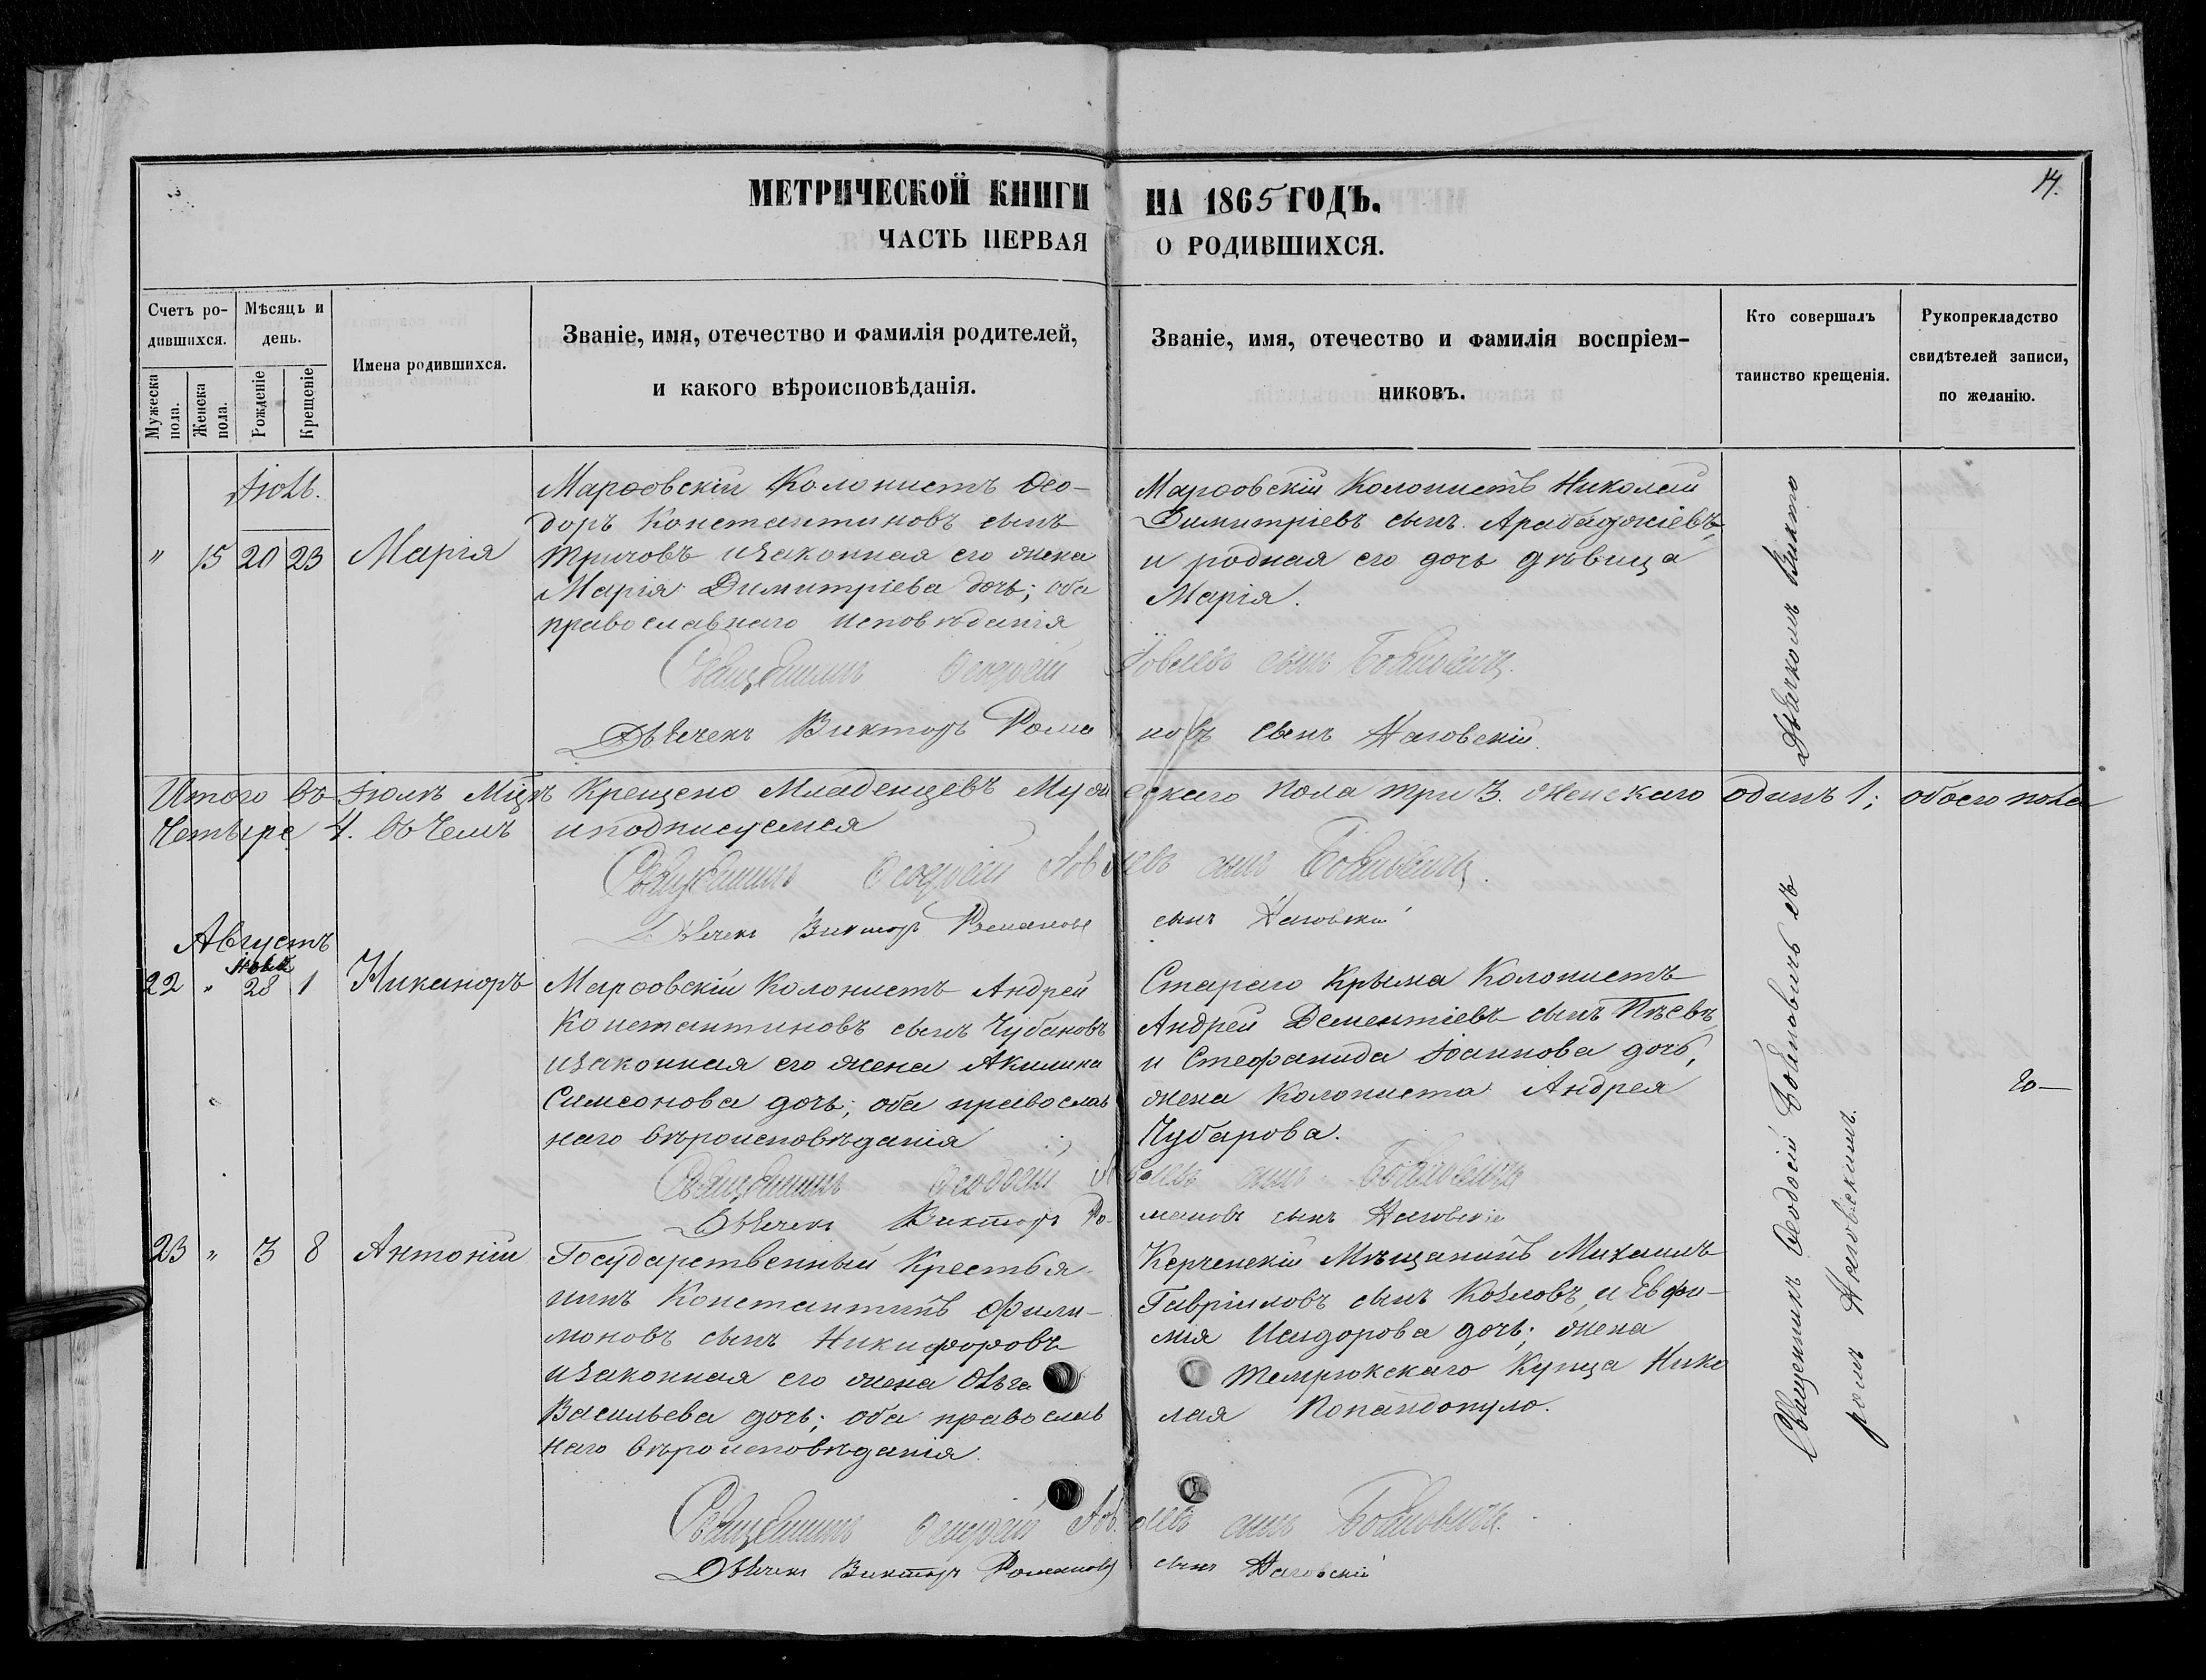 14.
МЕТРИЧЕСКОЙ КНИГИ НА 1865 ГОДЪ.
ЧАСТЬ ПЕРВАЯ О РОДИВШИХСЯ.
Счетъ ро-
дившихся.
Мужеска
пола.
Женска
пола.
Мѣсяцъ и
день.
Рожденіе
Крещеніе
Имена родившихся.
Званіе, имя, отечество и фамилія родителей,
и какого вѣроисповѣданія.
Званіе, имя, отечество и фамилія воспріем-
никовъ.
Кто совершалъ
таинство крещенія.
Рукоприкладство
свидѣтелей записи,
по желанію.
Іюль.
" 15 20 23 Марія
Марѳовскій Колонистъ Ѳео-
доръ Константиновъ сынъ
Тричовъ изаконная его жена
Марія Димитріева дочь; оба
православнаго исповѣданія
Марѳовскій Колонистъ Николай
Димитріевъ сынъ Арабаджіевъ,
и родная его дочь дѣвица
Марія.
Священникъ Ѳеодосій Іовлевъ сынъ
Дьячекъ Викторъ Романовъ сынъ Наговскій
Итого въ Іюлѣ Мцѣ Крещено Младенцевъ Мужескаго пола три 3. Женскаго одинъ 1; обоего пола
Четыре 4. въ чемъ иподписуемся
Священникъ Ѳеодосій Іовлевъ сынъ
Дьячекъ Викторъ Романовъ сынъ Наговскій
Августъ
22 " 28 1 Никаноръ
Марѳовскій Колонистъ Андрей
Константиновъ сынъ Чубановъ
изаконная его жена Акилина
Симеонова дочь; оба православ
наго вѣроисповѣданія
Стараго Крыма Колонистъ
Андрей Дементіевъ сынъ
и Стефанида Іоаннова дочь,
жена Колониста Андрея
Чубарова.
Священникъ Ѳеодосій Іовлевъ сынъ
Дьячекъ Викторъ Романовъ сынъ Наговскій
23 " 3 8 Антоній
Государственный Крестья
нинъ Константинъ Фили-
моновъ сынъ Никифоровъ
изаконная его жена Ольга
Васильева дочь; оба православ
наго вѣроисповѣданія.
Керченскій Мѣщанинъ Михаилъ
Гавріиловъ сынъ Козловъ, и Евфи-
мія Исидорова дочь; жена
Темрюкскаго Купца Нико
лая Попандопуло.
Священникъ Ѳеодосій Іовлевъ сынъ
Дьячекъ Викторъ Романовъ сынъ Наговскій
Священникъ Ѳеодосій съ Дьячкомъ Викто
ромъ Наговскимъ.